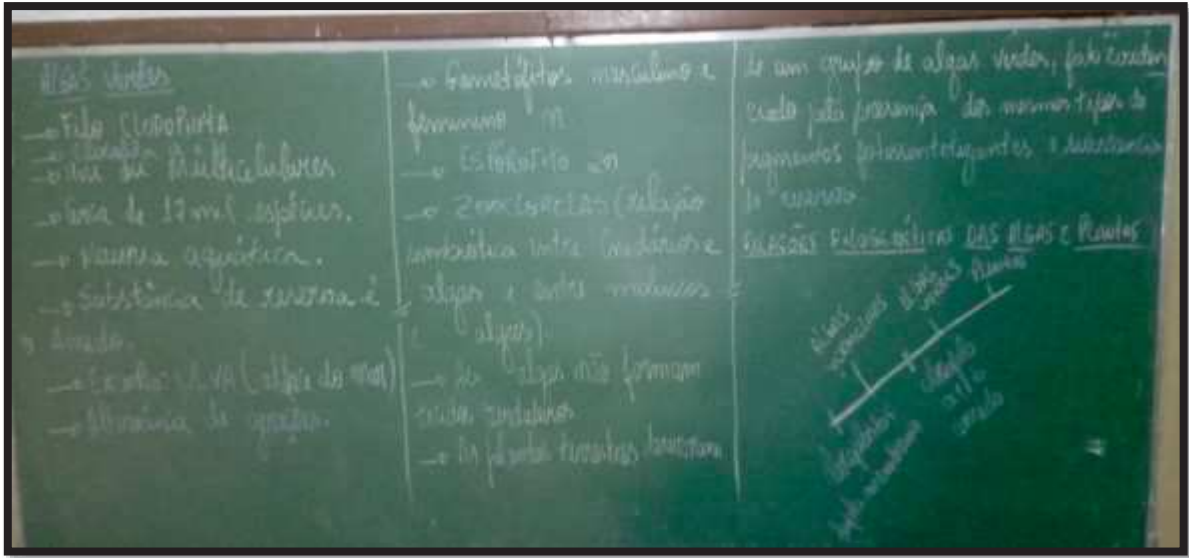 ALGAS VERDES
→ Filo CLOROPHYTA
→ Uni ou Multicelulares
→ Cerca de 17 mil espécies.
→ Maioria aquática.
→ Substância de reserva é
o Amido.
→ Exemplo: ULVA (alface do mar)
→ Alternância de gerações.
→ Gametófitos masculino e
feminino n
→ ESPORÓFITO 2n
→ ZOOCLORELAS (relação
simbiótica entre Cnidários e
algas e entre moluscos
e algas).
→ As algas não formam
→ As plantas terrestres
de um grupo de algas verdes, fato
pela presença dos mesmos tipos de
pigmentos fotossintetizantes e substância
de reserva
RELAÇÕES FILOGENÉTICAS DAS ALGAS E Plantas
ALGAS
vermelhas
ALGAS
verdes
Plantas
clorofila
a/b
amido